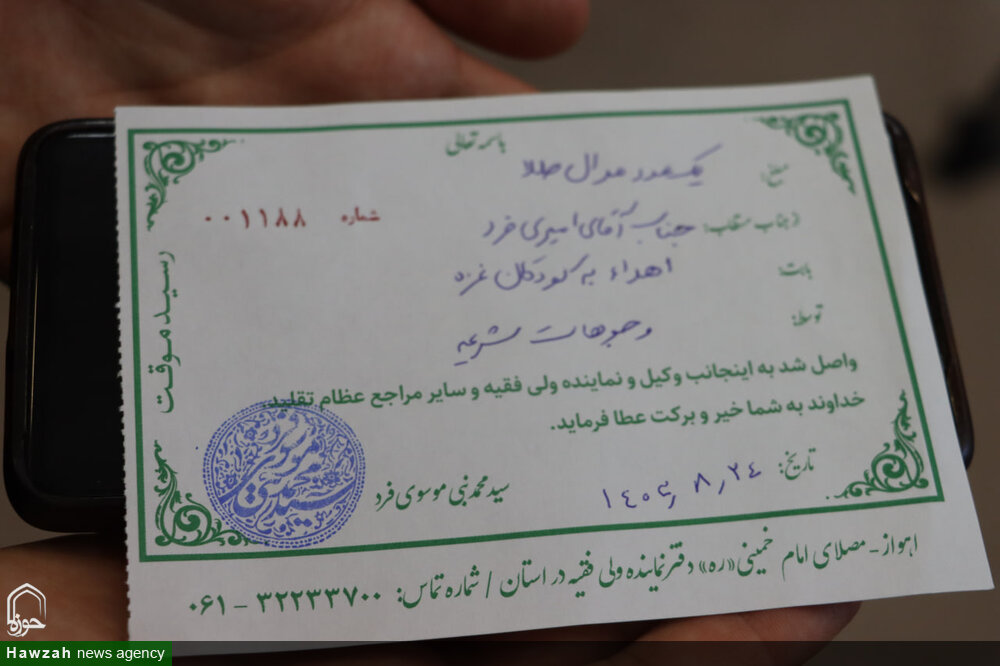 باسمه تعالی
مبلغ: یک عدد مدال طلا
شماره ۰۰۱۱۸۸
از جناب مستطاب: جناب آقای امیری فرد
بابت: اهداء به کودکان غزه
توسط: وجوهات شرعیه
واصل شد به اینجانب وکیل و نماینده ولی فقیه و سایر مراجع عظام تقلید.
خداوند به شما خیر و برکت عطا فرماید.
تاریخ: ۱۴۰۴٫۸٫۲۴
سید محمد نبی موسوی فرد
رسید موقت
اهواز - مصلای امام خمینی«ره» دفتر نماینده ولی فقیه در استان / شماره تماس: ۳۲۲۳۳۷۰۰ - ۰۶۱
حوزه
Hawzah news agency